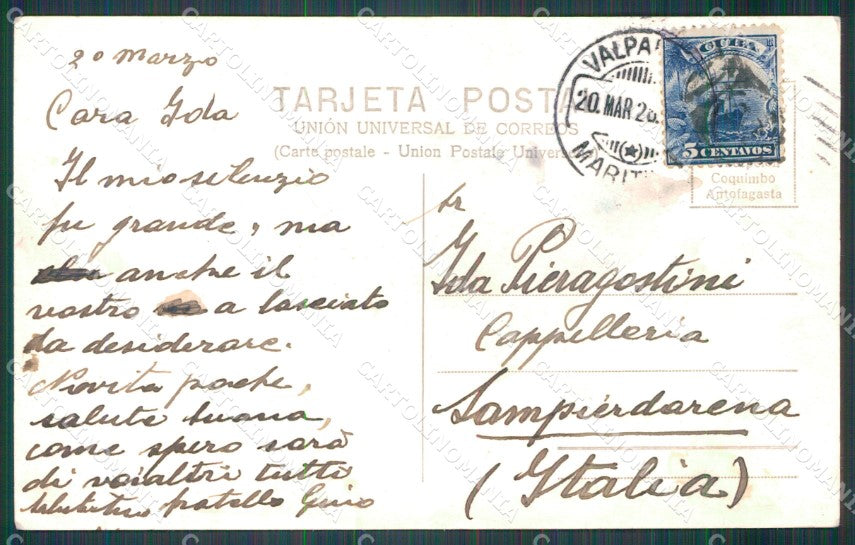 20 Marzo
Cara Ida
Il mio silenzio
fu grande, ma
anche il
vostro a lasciato
da desiderare.
Novita poche,
salute buona,
come spero sarà
di voialtri tutti
fratello Gino
TARJETA POSTA
UNIÓN UNIVERSAL DE CORREOS
(Carte postale - Union Postale Univers
VALPA
20. MAR 26.
MARIT
CUBA
5 CENTAVOS
Coquimbo
Antofagasta
Ida Pieragostini
Cappelleria
Sampierdarena
(Italia)
CARTOLINOMANIA